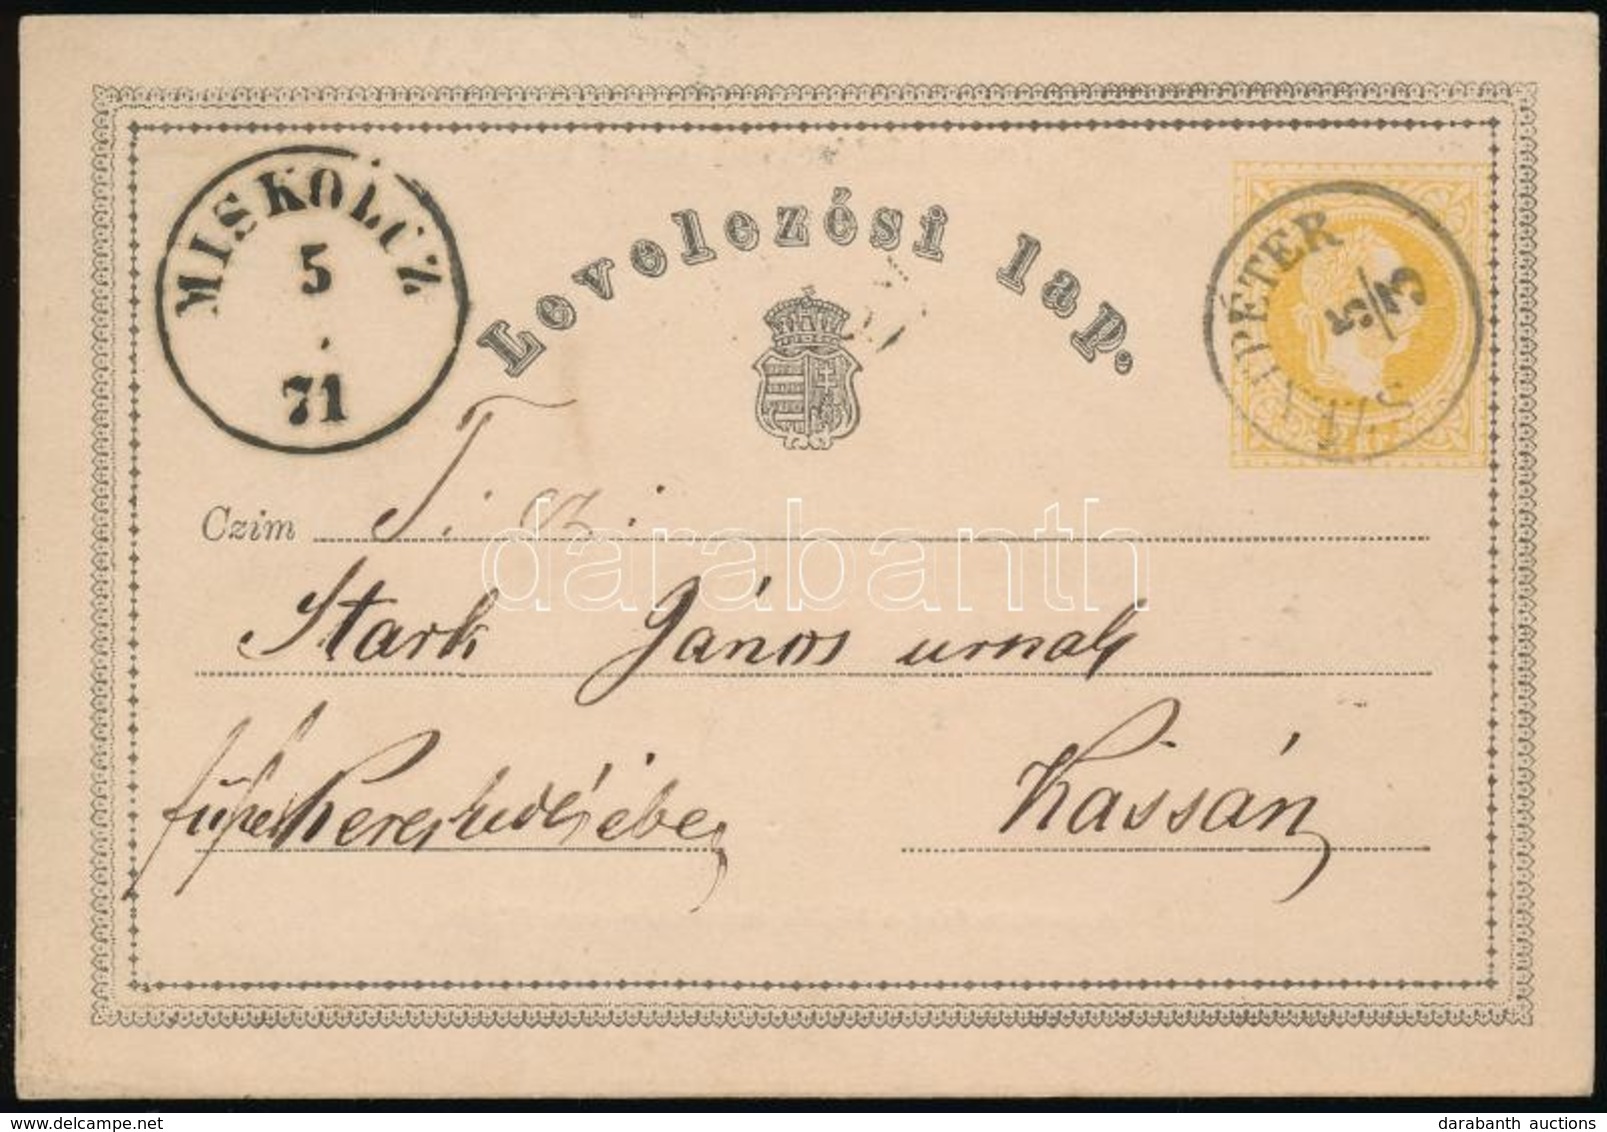 MISKOLCZ
5
71
Levelezési lap.
SAJÓ SZT PÉTER
5/3
Czim T. cz.
Stark János urnak
Kereskedésébe
Kassán
darabanth
darabanth auctions